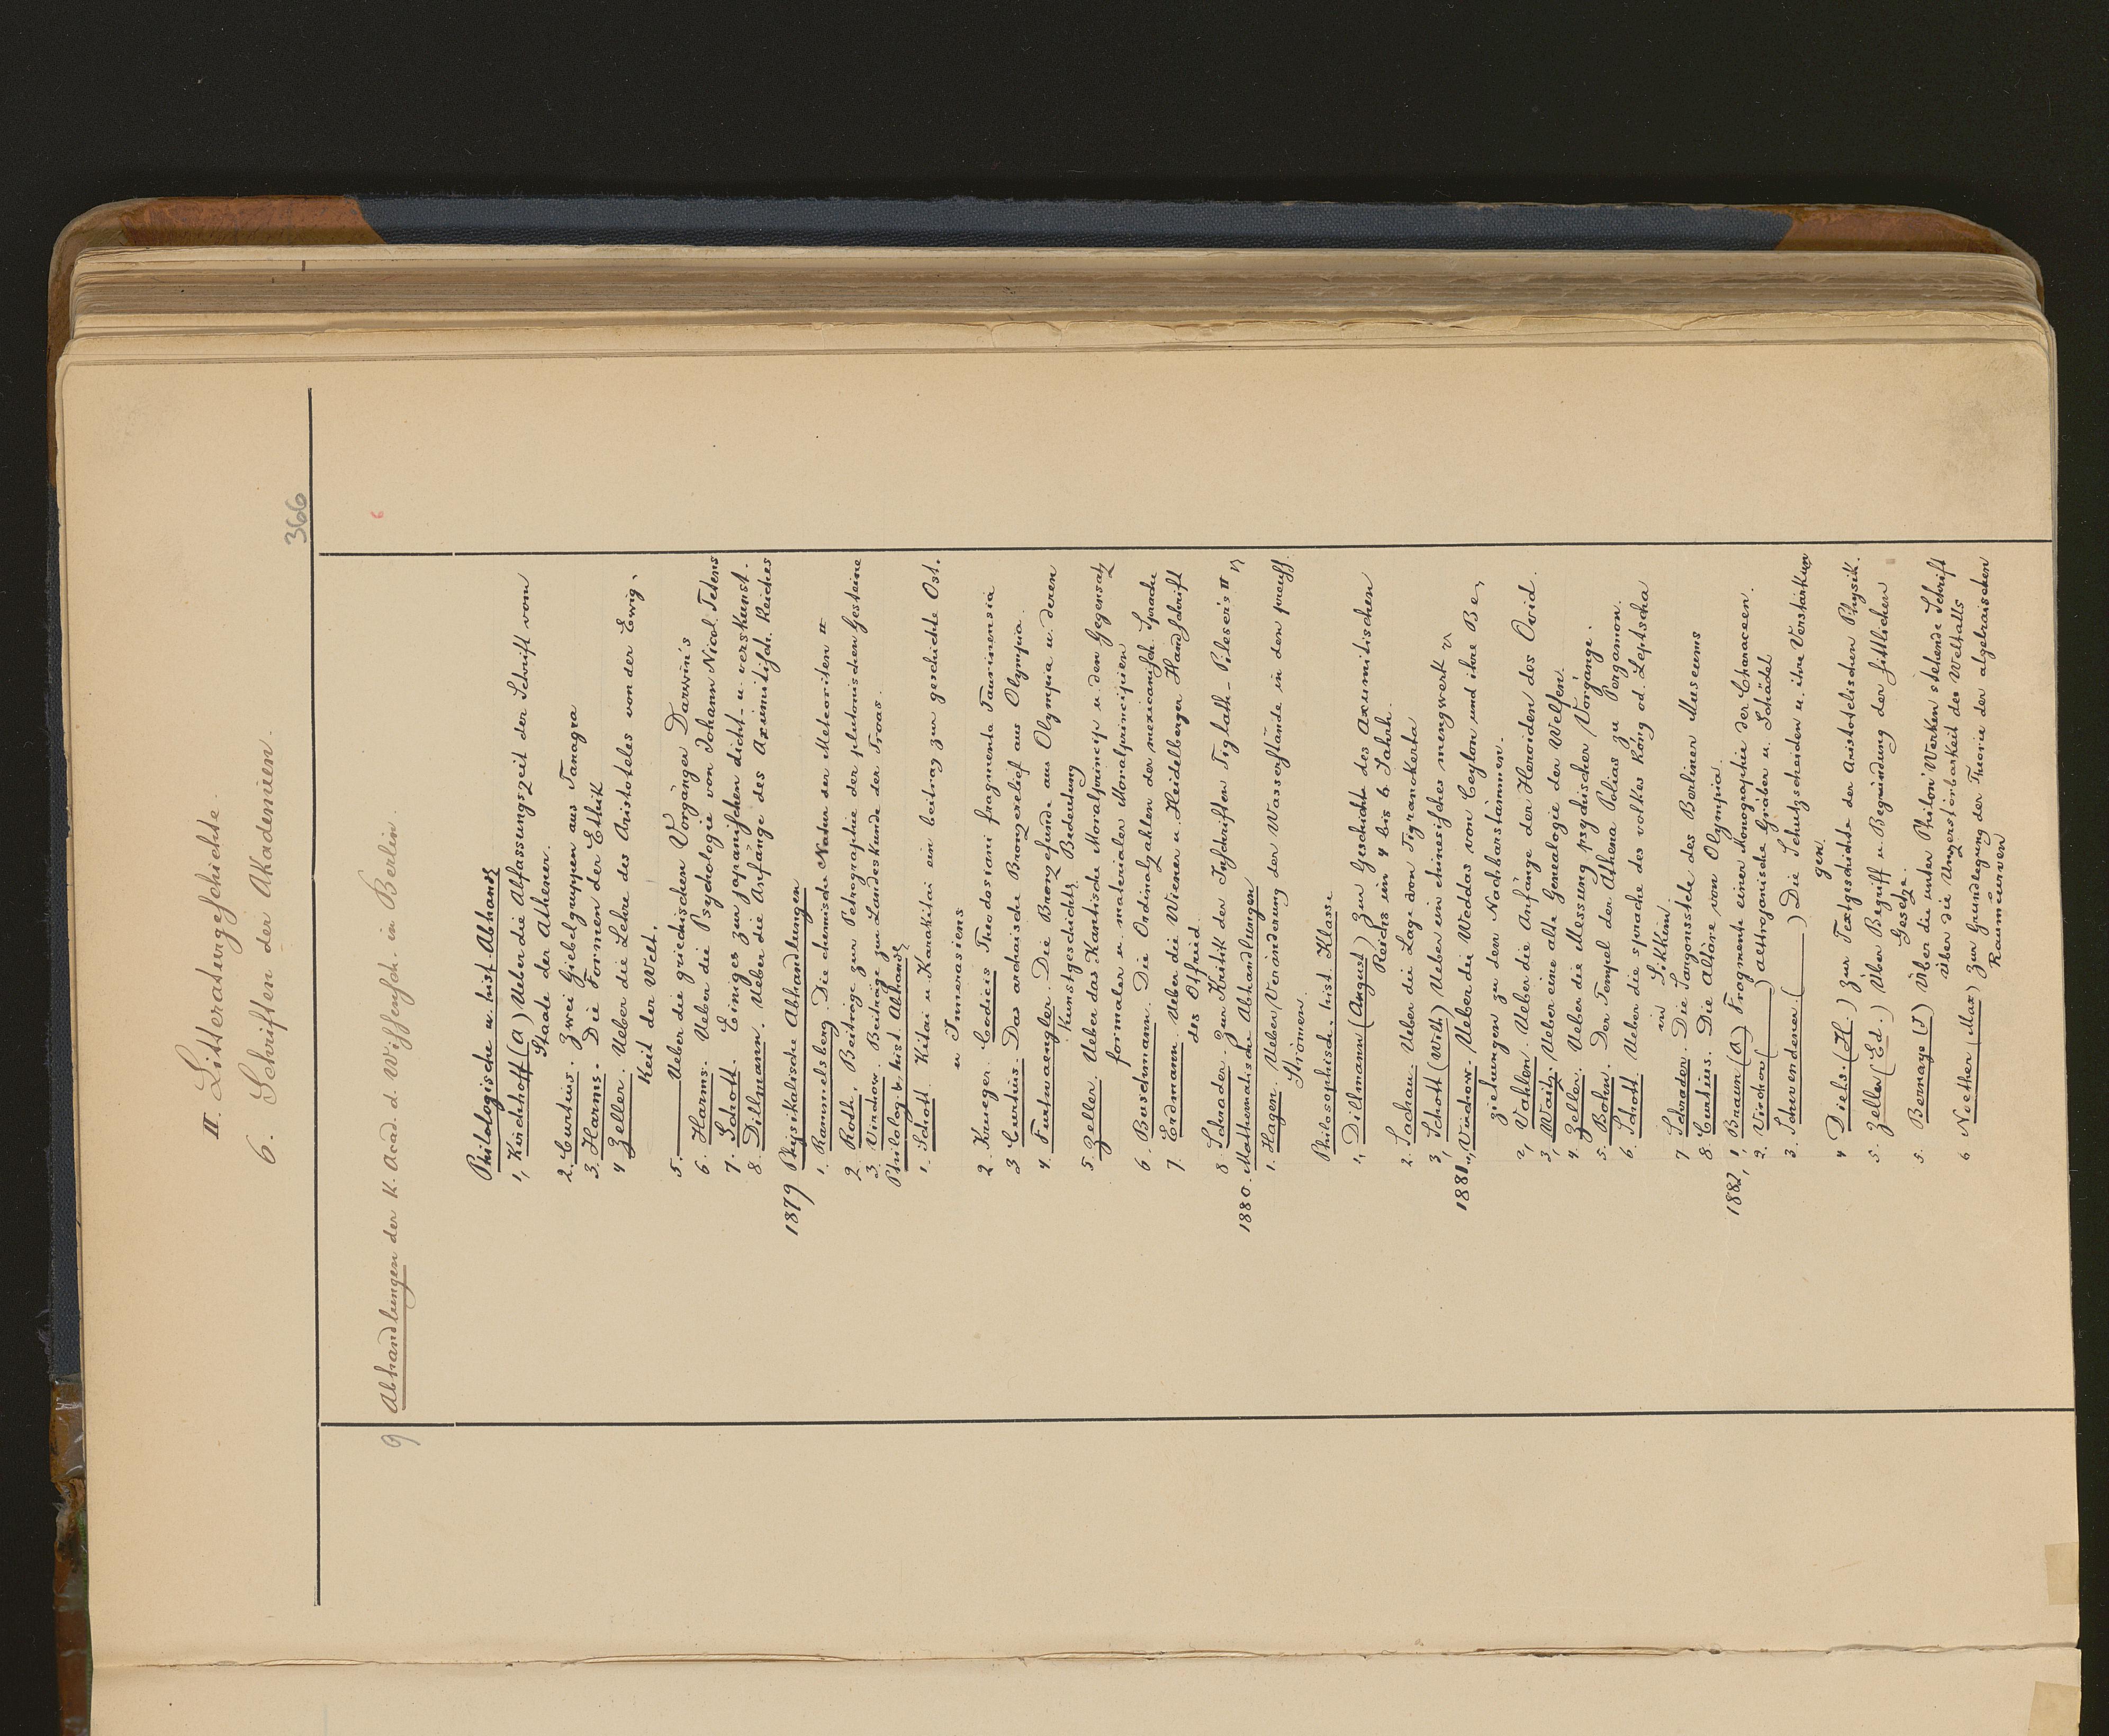 II. Litteraturgeschichte.
6. Schriften der Akademien.
366
9 Abhandlungen der K. Acad. d. Wissensch. in Berlin.
6
Philologische u. hist. Abhandl
1, Kirchhoff (A) Ueber die Abfassungszeit der Schrift vom
Staate der Athener.
2. Curtius. Zwei Giebelgruppen aus Tanagra
3. Harms. Die Formen der Ethik
4 Zeller. Ueber die Lehre des Aristoteles von der Ewig-
keit der Welt.
5. ——— Ueber die griechischen Vorgänger Darwin's
6. Harms. Ueber die Psychologie von Johann Nicol. Tetens
7. Schott. Einiges zur japanischen dicht- u. verskunst.
8. Dillmann. Ueber die Anfänge des Axumitisch. Reiches
1879 Physikalische Abhandlungen
1. Rammelsberg. Die chemische Natur der Meteoriten II
2 Roth. Beiträge zur Petrographie der plutonischen Gesteine
3. Virchow. Beiträge zur Landeskunde der Troas.
Philolog. u. hist Abhandl
1. Schott. Kitai u. Karakitai ein beitrag zur geschichte Ost.
u Innerasiens
2. Krueger. Codicis Theodosiani fragmenta Taurinensia
3 Curtius. Das archaische Bronzerelief aus Olympia.
4. Furtwaengler. Die Bronzefunde aus Olympia u. deren
Kunstgeschichtl. Bedeutung
5 Zeller. Ueber das Kantische Moralprincip u. den Gegensatz
formaler u. materialer Moralprincipien
6. Buschmann. Die Ordinalzahlen der mexicanisch. Sprache
7. Erdmann. Ueber die Wiener u. Heidelberger Handschrift
des Otfrid.
8 Schrader. Zur Kritik der Inschriften Tiglath-Pileser's II
1880. Mathematische Abhandlungen
1. Hagen. Ueber Veränderung der Wasserstände in den preuss.
Strömen.
Philosophisch. hist. Klasse
1, Dillmann (August) Zur Geschichte des Axumitischen
Reichs im 4 bis 6. Jahrh.
2. Sachau. Ueber die Lage von Tigranokerta
3, Schott (Wilh) Ueber ein chinesisches mengwerk
1881. 1, Virchow. Ueber die Weddas von Ceylon und ihre Be-
ziehungen zu den Nachbarstämmen.
2, Vahlen. Ueber die Anfänge der Heroiden des Ovid.
3, Waitz. Ueber eine alte Genealogie der Welfen.
4. Zeller. Ueber die Messung psychischer Vorgänge.
5. Bohn. Der Tempel der Athena Polias zu Pergamon.
6. Schott. Ueber die sprache des volkes Róng od. Leptscha
in Sikkim
7 Schrader. Die Sargonsstele des Berliner Museums
8. Curtius. Die Altäre von Olympia.
1882, 1, Braun (A) Fragmente einer Monographie der Characeen.
2. Virchow (———) alttrojanische Gräber u. Schädel
3. Schwendener. (———) Die Schutzscheiden u. ihre Verstärkun
gen.
4 Diels. (H.) Zur Textgeschichte der Aristotelischen Physik.
5. Zeller (Ed.) Über Begriff u. Begründung der sittlichen
Gesetze.
5. Bernays (J) Über die unter Philon's Werken stehende Schrift
über die Unzerstörbarkeit des Weltalls
6 Noether (Max) Zur Grundlegung der Theorie der algebraischen
Raumcurven